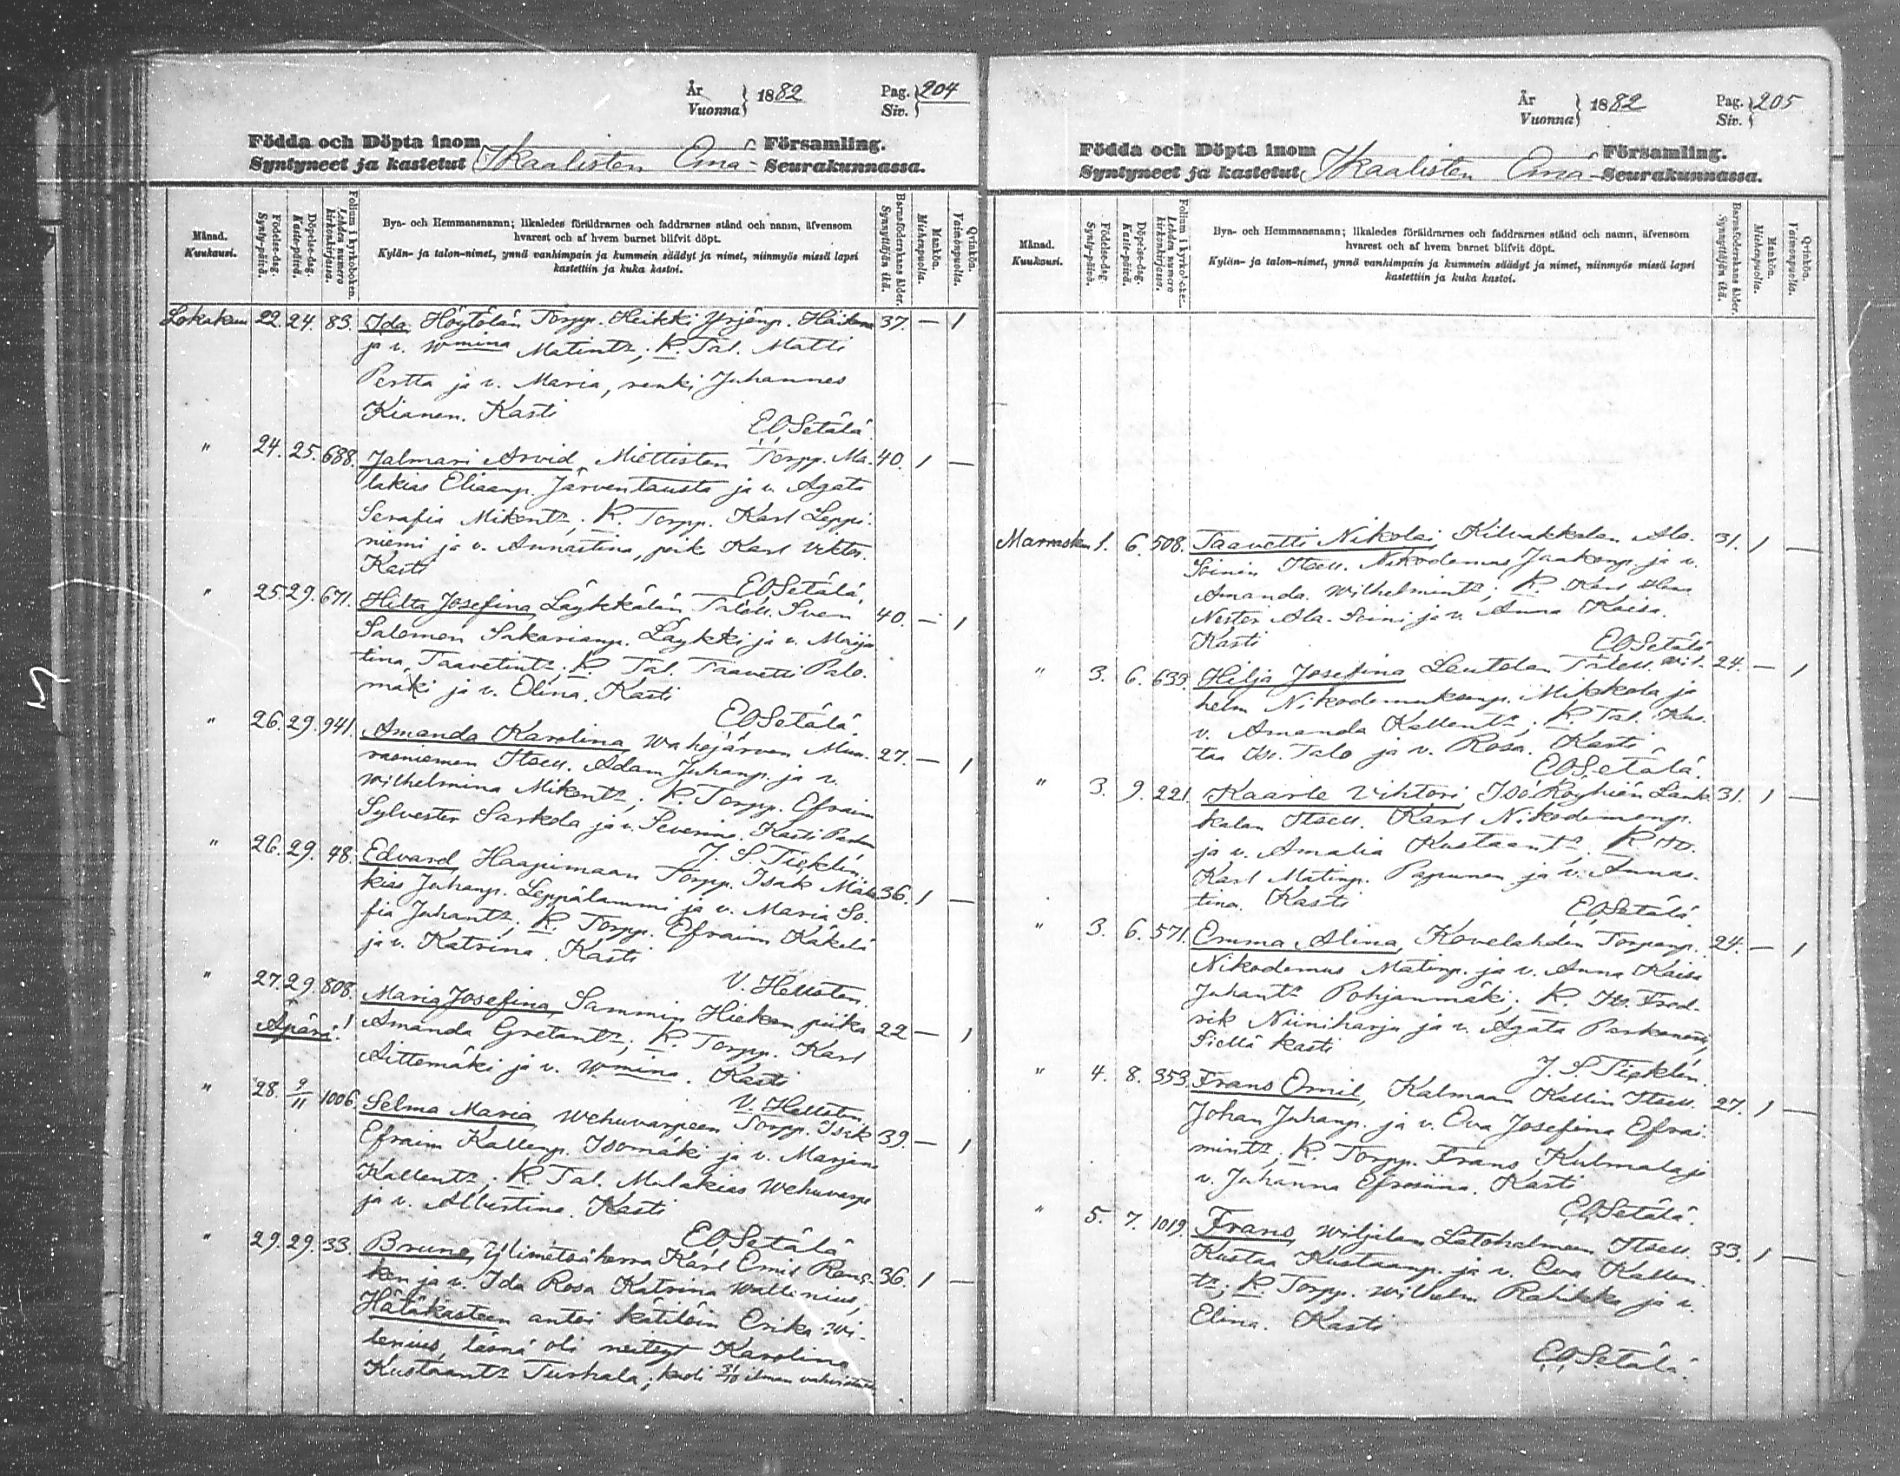 År
Vuonna } 1882
Pag.
Siv. } 204
Födda och Döpta inom
Syntyneet ja kastetut Ikaalisten Emä- Församling.
Seurakunnassa.
Månad.
Kuukausi.
Födelse-dag.
Synty-päivä.
Döpelse-dag.
Kaste-päivä.
Folium i kyrkoboken.
Lehden numero kirkonkirjassa.
Bya- och Hemmansnamn; likaledes föräldrarnes och faddrarnes stånd och namn, äfvensom
hvarest och af hvem barnet blifvit döpt.
Kylän- ja talon-nimet, ynnä vanhimpain ja kummein säädyt ja nimet, niinmyös missä lapsi
kastettiin ja kuka kastoi.
Barnaföderskans ålder.
Synnyttäjän ikä.
Mankön.
Miehenpuolia.
Qvinkön.
Vaimonpuolia.
Lokakuun 22. 24. 83. Ida, Höytölän Torpp. Heikki Yrjönp. 37. — 1
ja v. Wmina Matintr; K. Tal. Matti
Pertta ja v. Maria, renki Juhannes
Kianen. Kasti
EOSetälä.
" 24. 25. 688. Jalmari Arvid, Miettisten Torpp. Ma- 40. 1 —
lakias Eliaanp. Järventausta ja v. Agata
Serafia Mikentr; K. Torpp. Karl Leppi-
niemi ja v. Annastina, poik. Karl Viktor.
Kasti
EOSetälä.
" 25. 29. 671. Hilta Josefina, Läykkälän Taloll. Sven 40. — 1
Salomon Sakarianp. Läykki ja v. Maija
tina Taavetintr; K. Tal. Taavetti Palo-
mäki ja v. Olina. Kasti
EOSetälä.
" 26. 29. 941. Amanda Karolina, Wahojärven Muu- 27. — 1
rasniemen Itsell. Adam Juhanp. ja v.
Wilhelmina Mikentr; K. Torpp. Efraim
Sylvester Sarkola ja v. Severina. Kasti
J. S. Tieklén.
" 26. 29. 48. Edvard, Haapimaan Torpp. Isak Mala- 36. 1 —
kias Juhanp. Leppälammi ja v. Maria So-
fia Juhantr; K. Torpp. Efraim Käkelä
ja v. Katrina. Kasti
V. Hellsten.
" 27. 29. 808. Maria Josefina, Sammin Hiekan piika 22 — 1
Äpärä! Amanda Gretantr; K. Torpp. Karl
Aittomäki ja v. Wmina. Kasti
V. Hellsten.
" 28. 9/11 1006. Selma Maria, Wehuvarpeen Torpp. Isak 39. — 1
Efraim Kallenp. Isomäki ja v. Marjana
Kallentr; K. Tal. Malakias Wehuvarpe
ja v. Albertina. Kasti
EOSetälä
" 29. 29. 33. Bruno, Ylimetsäherra Karl Emil Reng- 36. 1 —
ken ja v. Ida Rosa Katrina Wallenius,
Hätäkasteen antoi kätilöin Erika Wi-
lenius, läsnä oli neitsyt Karolina
Kustaantr Turkala; 31/10 ilman
År
Vuonna } 1882
Pag.
Siv. } 205
Födda och Döpta inom
Syntyneet ja kastetut Ikaalisten Emä- Församling.
Seurakunnassa.
Månad.
Kuukausi.
Födelse-dag.
Synty-päivä.
Döpelse-dag.
Kaste-päivä.
Folium i kyrkoboken.
Lehden numero kirkonkirjassa.
Bya- och Hemmansnamn; likaledes föräldrarnes och faddrarnes stånd och namn, äfvensom
hvarest och af hvem barnet blifvit döpt.
Kylän- ja talon-nimet, ynnä vanhimpain ja kummein säädyt ja nimet, niinmyös missä lapsi
kastettiin ja kuka kastoi.
Barnaföderskans ålder.
Synnyttäjän ikä.
Mankön.
Miehenpuolia.
Qvinkön.
Vaimonpuolia.
Marrask. 1. 6. 508. Taavetti Nikolai, Kilvakkalan Ala- 31. 1 —
Soinin Itsell. Nikodemus Jaakonp. ja v.
Amanda Wilhelmintr; K. Karl
Nestor Ala-Soini ja v. Anna Kaisa.
Kasti
EOSetälä
" 3. 6. 639. Hilja Josefina, Leutolan Talell. Wil- 24. — 1
helm Nikodemuksenp. Mikkola ja
v. Amanda Kallentr; K. Tal. Kus-
taa Iso-Talo ja v. Rosa. Kasti
EOSetälä.
" 3. 9. 221. Kaarle Vihtori, Iso-Röyhiön Lauk- 31. 1 —
kalan Itsell. Karl Nikodemenp.
ja v. Amalia Kustaantr. K. Its.
Karl Matinp. Papunen ja v. Annas-
tina. Kasti
EOSetälä.
" 3. 6. 571. Emma Alina, Kovelahden Torpanp. 24. — 1
Nikodemus Matinp. ja v. Anna Kaisa
Juhantr Pohjanmäki; K. Its. Fred-
rik Niiniharju ja v. Agata Parkanosta,
Siellä kasti
J. S. Tieklén.
" 4. 8. 353. Frans Emil, Kalmaan Kallin Itsell. 27. 1 —
Johan Juhanp. ja v. Eva Josefina Efrai-
mintr; K. Torpp. Frans Kulmala ja
v. Juhanna Efrosiina. Kasti
EOSetälä.
" 5. 7. 1019. Frans, Wiljalan Latohalmeen Itsell. 33. 1 —
Kustaa Kustaanp. ja v. Eva Kallen-
tr; K. Torpp. Wilhelm Rahikka ja v.
Elina. Kasti
EOSetälä.